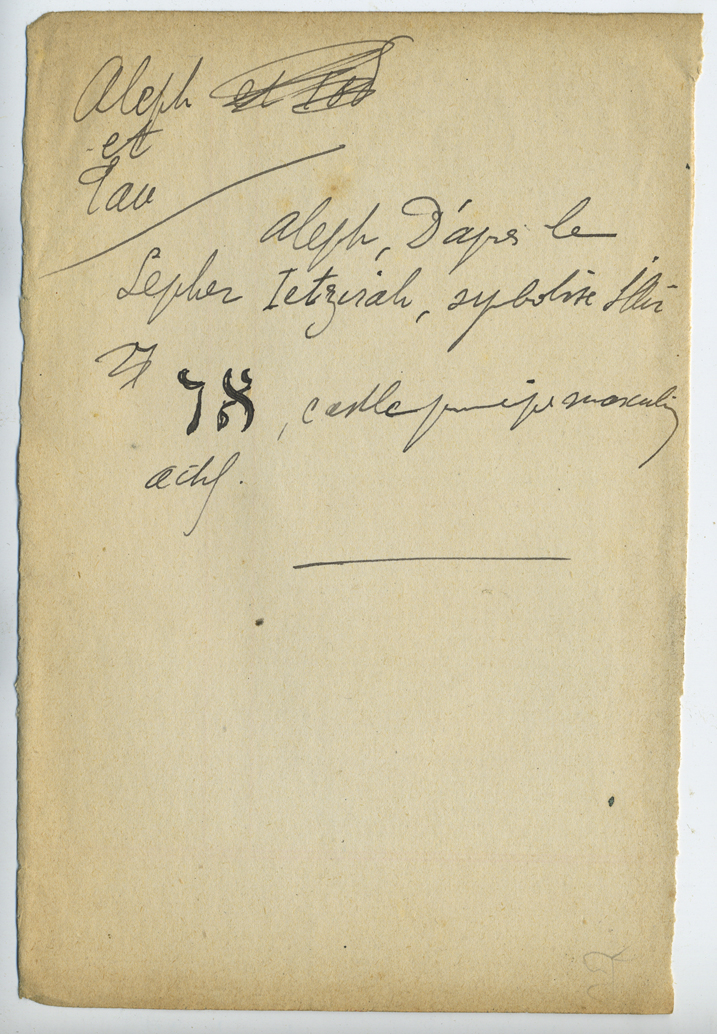 Aleph et Iod
et
Tau
Aleph, D'après le
Sepher Ietzirah, sybolise l'Air
א
, c'est le principe masculin
actif.